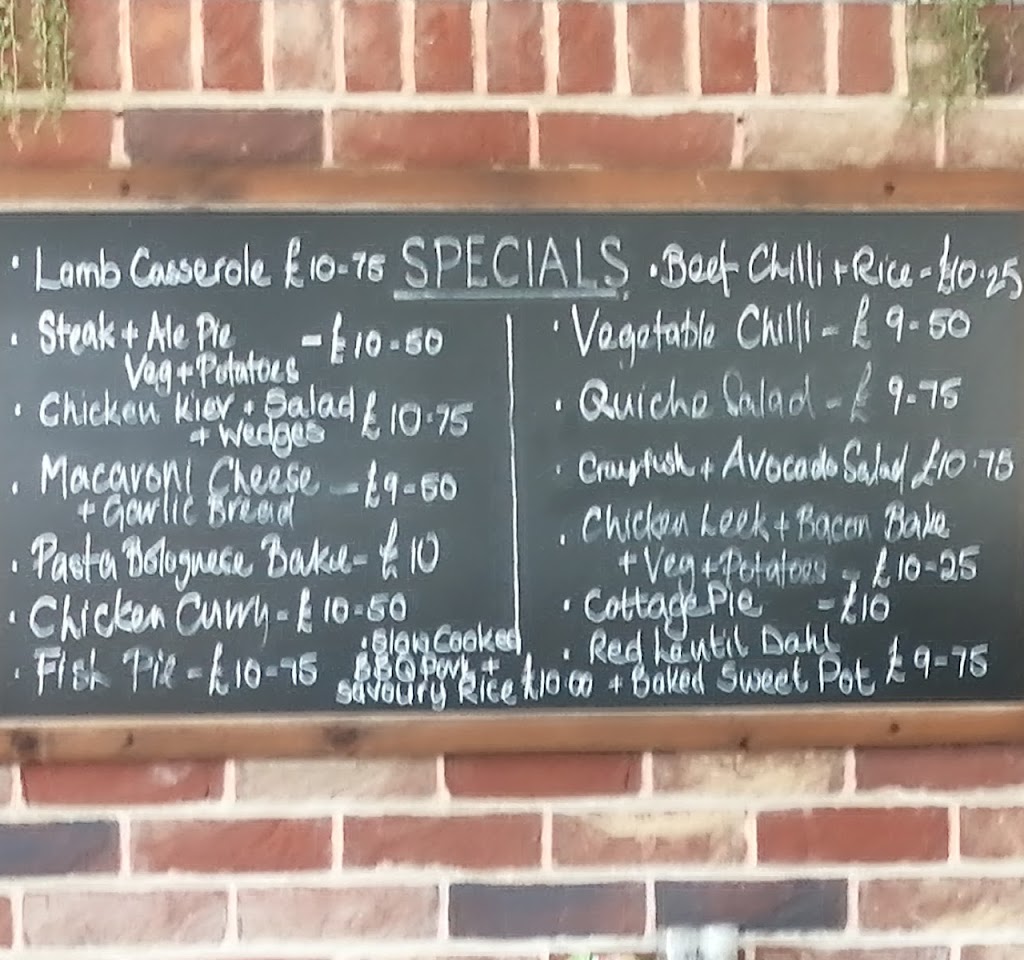 SPECIALS
• Lamb Casserole £10-75
• Steak + Ale Pie - £10-50
Veg + Potatoes
• Chicken Kiev + Salad £10-75
+ Wedges
• Macaroni Cheese - £9-50
+ Garlic Bread
• Pasta Bolognese Bake - £10
• Chicken Curry - £10-50
• Fish Pie - £10-75
• Slow Cooked
BBQ Pork +
Savoury Rice £10 00
• Beef Chilli + Rice - £10-25
• Vegetable Chilli - £9-50
• Quiche Salad - £9-75
• Crayfish + Avocado Salad £10-75
• Chicken Leek + Bacon Bake
+ Veg + Potatoes - £10-25
• Cottage Pie - £10
• Red Lentil Dahl
+ Baked Sweet Pot £9-75